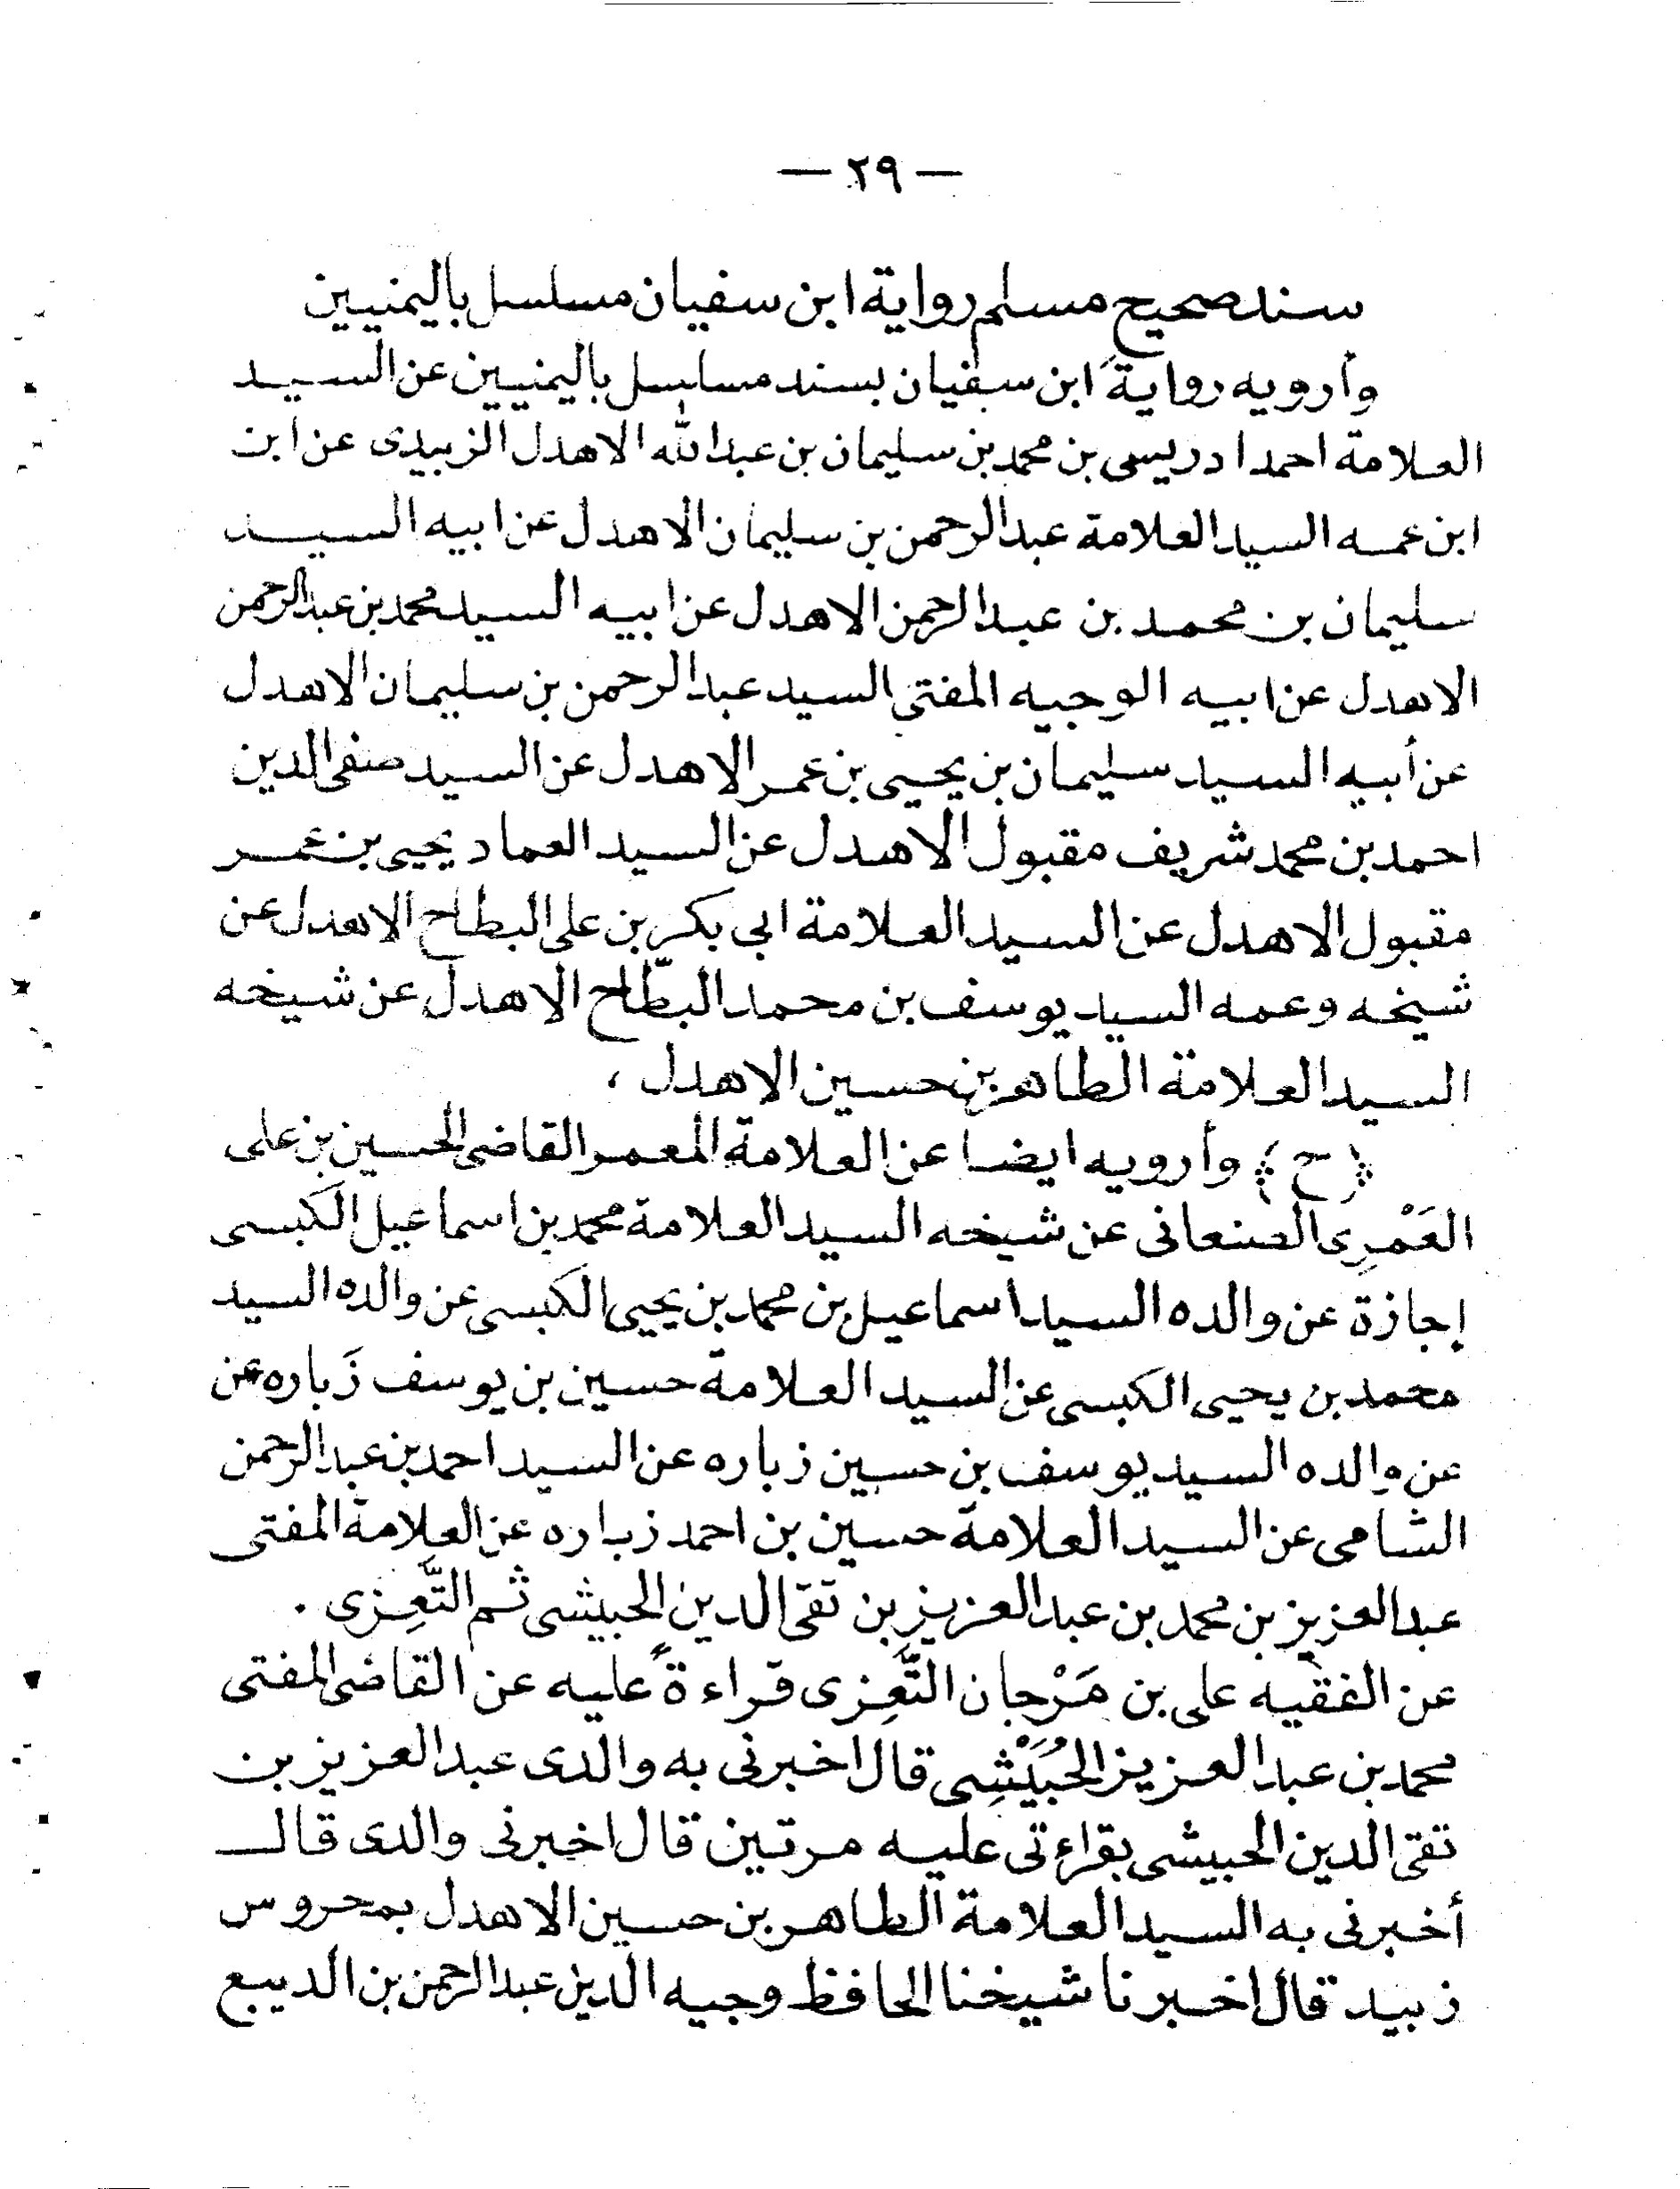 — ٢٩ —
سند صحيح مسلم رواية ابن سفيان مسلسل باليمنيين
وأرويه رواية ابن سفيان بسند مسلسل باليمنيين عن السيد
العلامة احمد ادريسى بن محمد بن سليمان بن عبدالله الاهدل الزبيدى عن ابن
ابن عمه السيد العلامة عبدالرحمن بن سليمان الاهدل عن ابيه السيد
سليمان بن محمد بن عبدالرحمن الاهدل عن ابيه السيد محمد بن عبدالرحمن
الاهدل عن ابيه الوجيه المفتى السيد عبدالرحمن بن سليمان الاهدل
عن أبيه السيد سليمان بن يحيى بن عمر الاهدل عن السيد صفى الدين
احمد بن محمد شريف مقبول الاهدل عن السيد العماد يحيى بن عمر
مقبول الاهدل عن السيد العلامة ابى بكر بن على البطاح الاهدل عن
شيخه وعمه السيد يوسف بن محمد البطّاح الاهدل عن شيخه
السيد العلامة الطاهر بن حسين الاهدل ،
﴿ ح ﴾ وأرويه ايضا عن العلامة المعمر القاضى الحسين بن على
العَمْرِى الصنعانى عن شيخه السيد العلامة محمد بن اسماعيل الكبسى
إجازة عن والده السيد اسماعيل بن محمد بن يحيى الكبسى عن والده السيد
محمد بن يحيى الكبسى عن السيد العلامة حسين بن يوسف زَباره عن
عن والده السيد يوسف بن حسين زباره عن السيد احمد بن عبدالرحمن
الشامى عن السيد العلامة حسين بن احمد زباره عن العلامة المفتى
عبدالعزيز بن محمد بن عبدالعزيز بن تقى الدين الحبيشى ثم التَّعِزى .
عن الفقيه على بن مَرْجان التَّعِزى قراءةً عليه عن القاضى المفتى
محمد بن عبدالعزيز الحُبَيْشِى قال اخبرنى به والدى عبدالعزيز بن
تقى الدين الحبيشى بقراءتى عليه مرتين قال اخبرنى والدى قال
أخبرنى به السيد العلامة الطاهر بن حسين الاهدل بمحروس
زبيد قال اخبرنا شيخنا الحافظ وجيه الدين عبدالرحمن بن الديبع